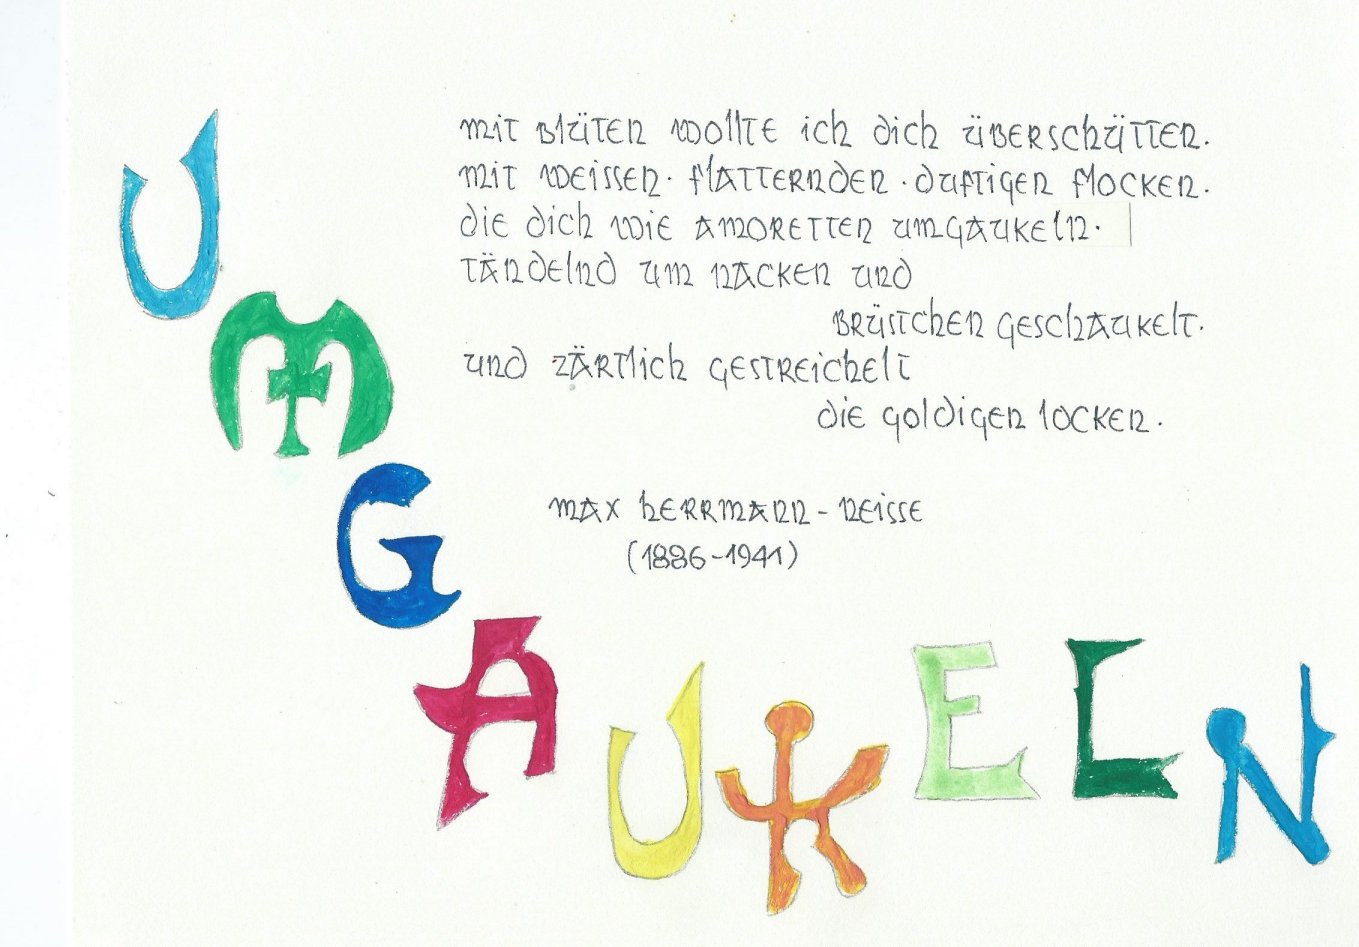 mit Blüten wollte ich dich überschütten.
mit weissen. flatternden. duftigen flocken.
die dich wie Amoretten umgaukeln.
tändelnd um nacken und
brüstchen geschaukelt.
und zärtlich gestreichelt
die goldigen locken.
max herrmann-neisse
(1886-1941)
UMGAUKELN